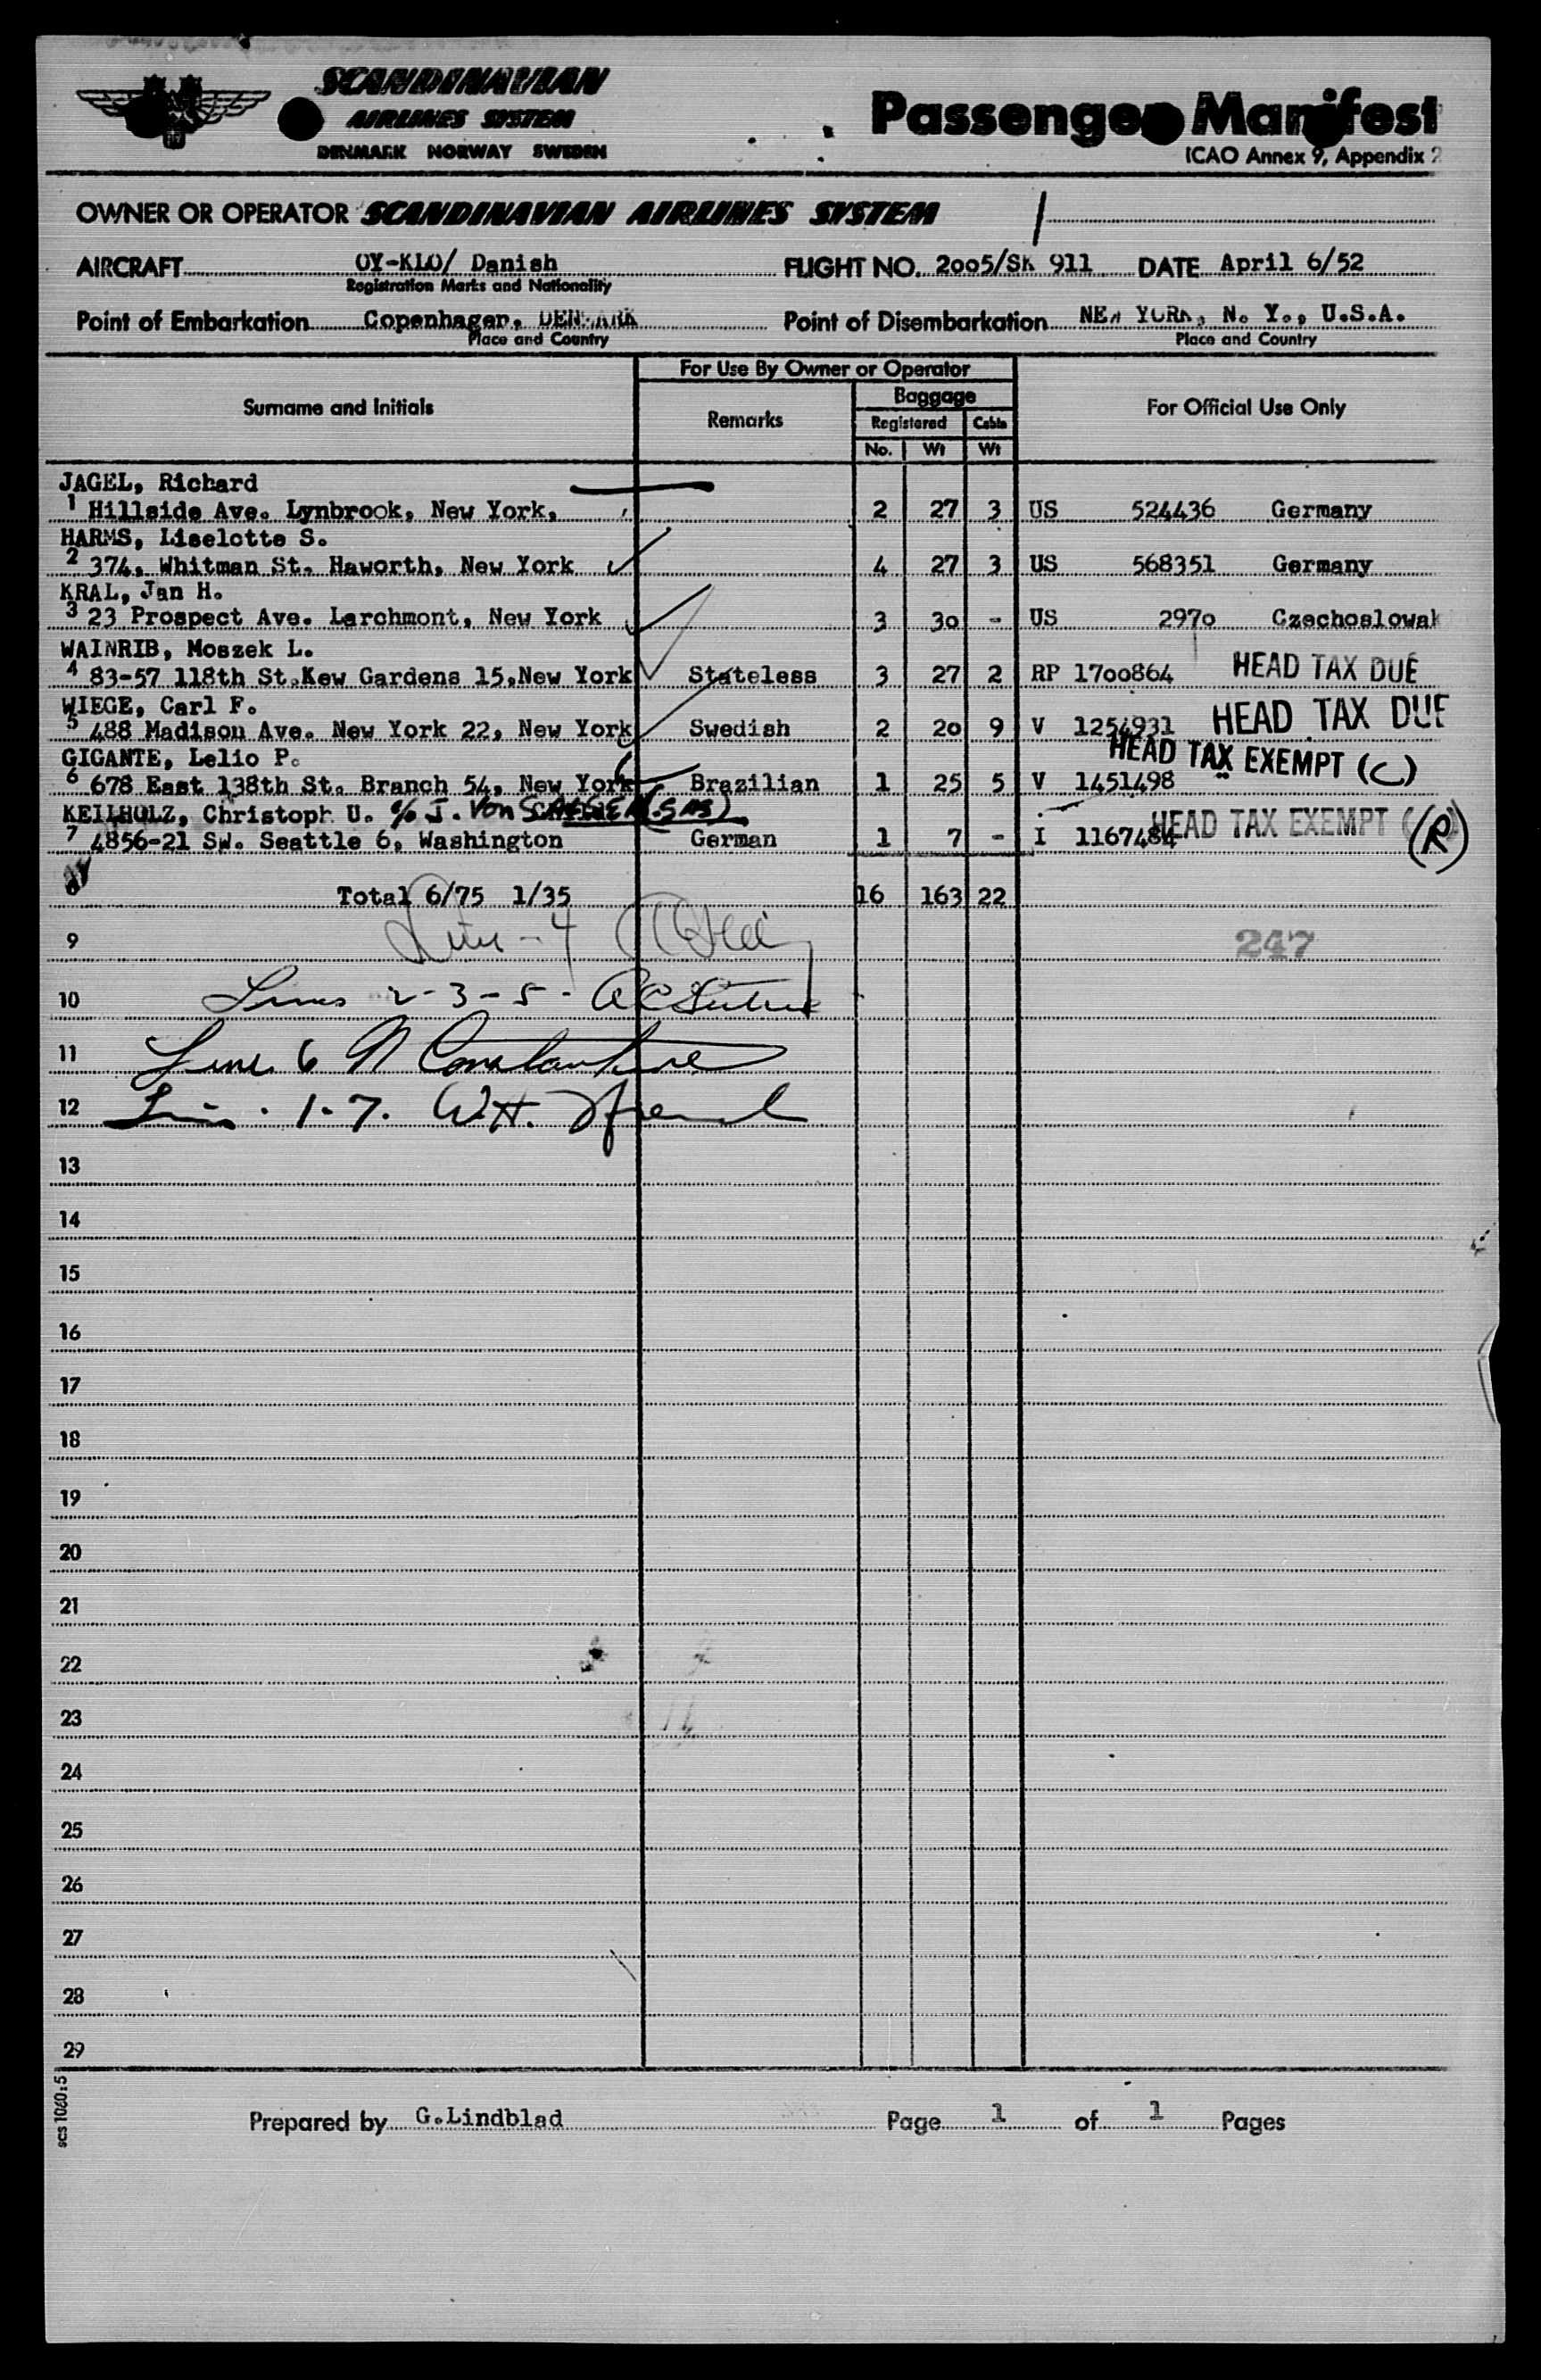 SCANDINAVIAN
AIRLINES SYSTEM
DENMARK NORWAY SWEDEN
Passenger Manifest
ICAO Annex 9, Appendix 2
OWNER OR OPERATOR SCANDINAVIAN AIRLINES SYSTEM
AIRCRAFT OY-KLO/ Danish FLIGHT NO. 2005/SK 911 DATE April 6/52
Registration Marks and Nationality
Point of Embarkation Copenhagen, DENMARK Point of Disembarkation NEW YORK, N. Y., U.S.A.
Place and Country Place and Country
For Use By Owner or Operator
Surname and Initials Remarks Baggage For Official Use Only
Registered Cabin
No. Wt Wt
JAGEL, Richard
1 Hillside Ave. Lynbrook, New York, 2 27 3 US 524436 Germany
HARMS, Liselotte S.
2 374, Whitman St. Haworth, New York 4 27 3 US 568351 Germany
KRAL, Jan H.
3 23 Prospect Ave. Larchmont, New York 3 30 - US 2970 Czechoslowak
WAINRIB, Moszek L.
4 83-57 118th St. Kew Gardens 15, New York Stateless 3 27 2 RP 1700864 HEAD TAX DUE
WIEGE, Carl F.
5 488 Madison Ave. New York 22, New York Swedish 2 20 9 V 1254931 HEAD TAX DUE
GIGANTE, Lelio P. HEAD TAX EXEMPT (C)
6 678 East 138th St. Branch 54, New York Brazilian 1 25 5 V 1451498
KEILHOLZ, Christoph U. c/o J. Von (SAS) HEAD TAX EXEMPT (R)
7 4856-21 SW. Seattle 6, Washington German 1 7 - I 1167484
8 Total 6/75 1/35 16 163 22
9 Line - 4 247
10 Lines 2-3-5-
11 Line 6 N Constantine
12 1-7. W.H.
13
14
15
16
17
18
19
20
21
22
23
24
25
26
27
28
29
scs 1080:5
Prepared by G.Lindblad Page 1 of 1 Pages